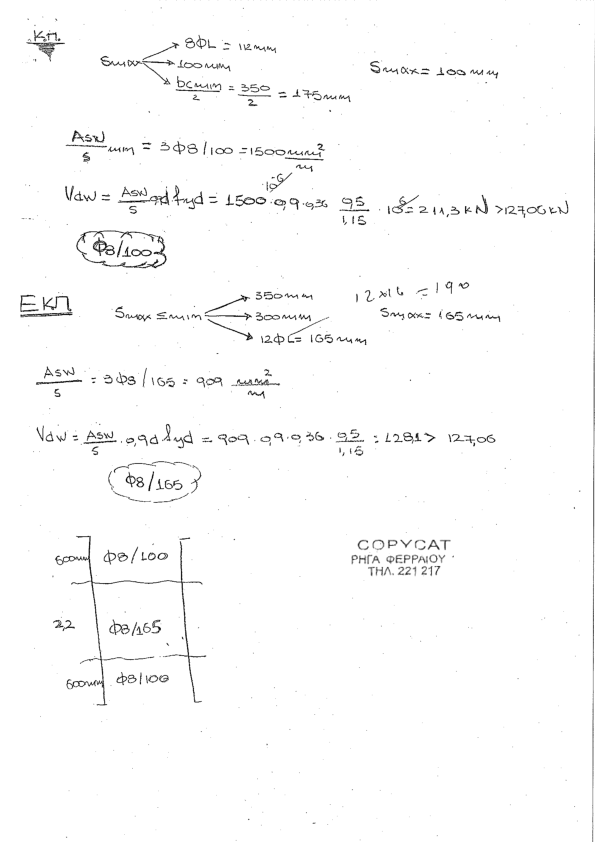 Κ.Π.
Smax
8ΦL = 112mm
100mm
bcmin/2 = 350/2 = 175mm
Smax = 100mm
Asw/s min = 3Φ8/100 = 1500 mm²/m
Vdw = Asw/s 0,9d fyd = 1500 · 0,9 · 0,36 0,5/1,15 · 10⁶ = 211,3 kN > 127,06 kN
10⁻⁶
Φ8/100
ΕΚΠ
Smax ≤ min
350mm
300mm
12ΦL = 165mm
12×16 = 190
Smax = 165mm
Asw/s = 3Φ8/165 = 909 mm²/m
Vdw = Asw/s · 0,9d fyd = 909 · 0,9 · 0,36 · 0,5/1,15 = 128,1 > 127,06
Φ8/165
600mm Φ8/100
2,2 Φ8/165
600mm Φ8/100
COPYCAT
ΡΗΓΑ ΦΕΡΡΑΙΟΥ
ΤΗΛ. 221 217